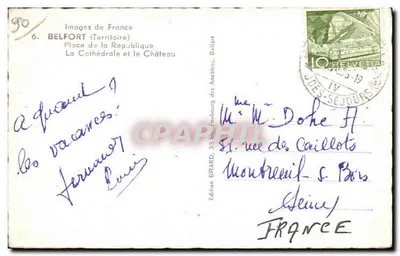 90
Images de France
6. BELFORT (Territoire)
Place de la République
La Cathédrale et le Château
à quand
les vacances!
Fernand
Edition BRAUN, 33 Faubourg des Ancêtres, Belfort
CPARAMA
10
HELVETIA
IV
M me M Dohe A.
51, rue des Caillots
Montreuil s Bois
Seine
FRANCE